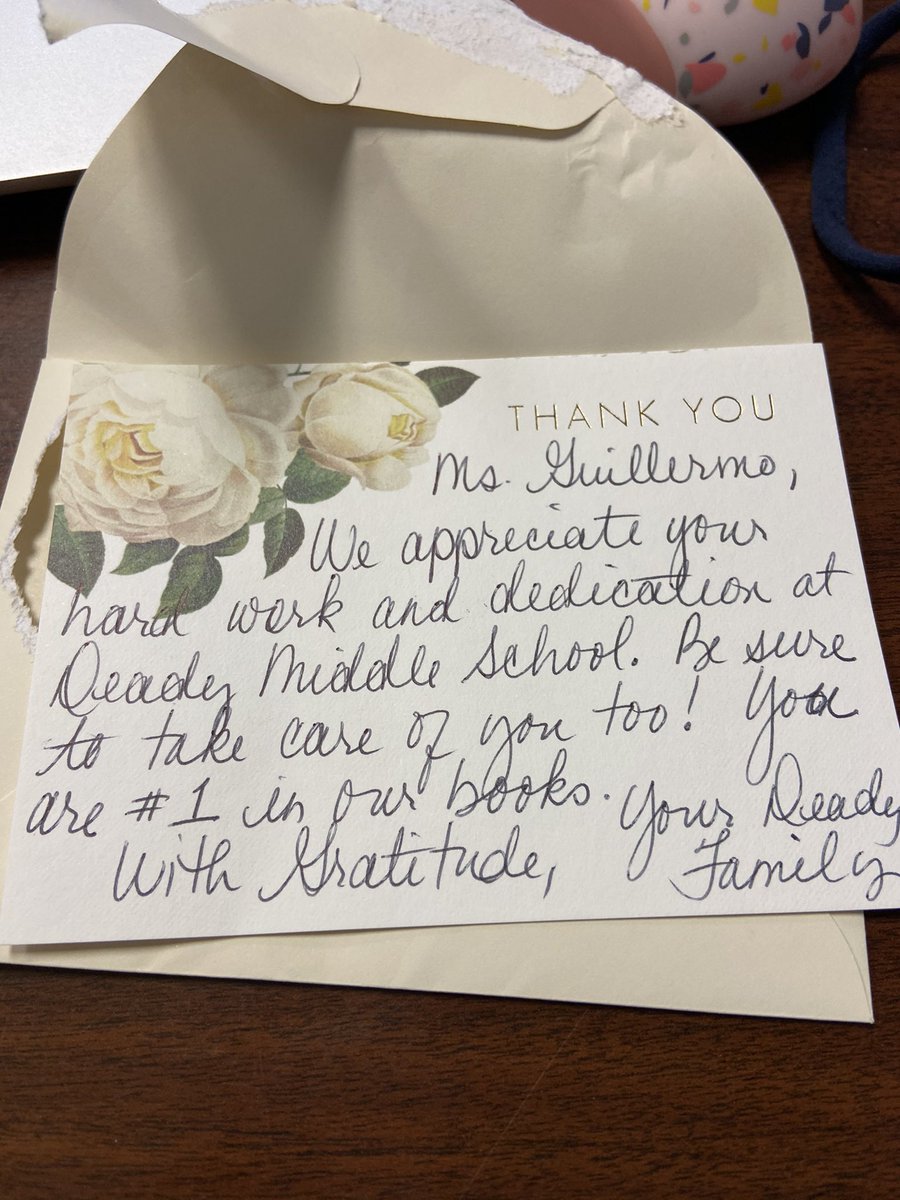 THANK YOU
Ms. Guillermo,
We appreciate your
hard work and dedication at
Deady Middle School. Be sure
to take care of you too! You
are #1 in our books.
With Gratitude,
Your Deady
Family